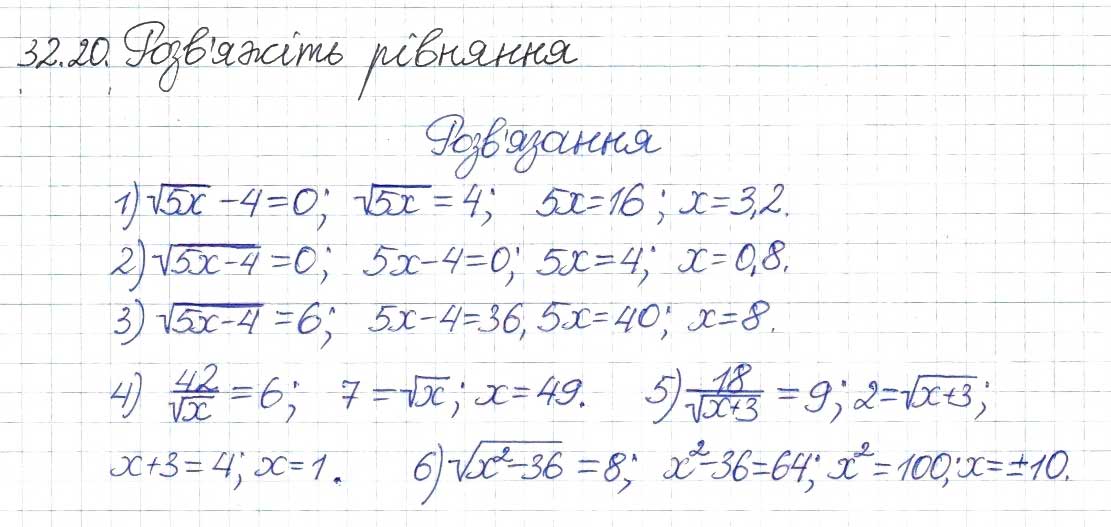 32.20. Розв'яжіть рівняння
Розв'язання
1) √5x - 4 = 0; √5x = 4; 5x = 16; x = 3,2.
2) √5x-4 = 0; 5x-4=0; 5x=4; x=0,8.
3) √5x-4 = 6; 5x-4=36, 5x=40; x=8.
4) 42/√x = 6; 7 = √x; x=49. 5) 18/√x+3 = 9; 2=√x+3;
x+3=4; x=1. 6) √x²-36 = 8; x²-36=64; x²=100; x=±10.